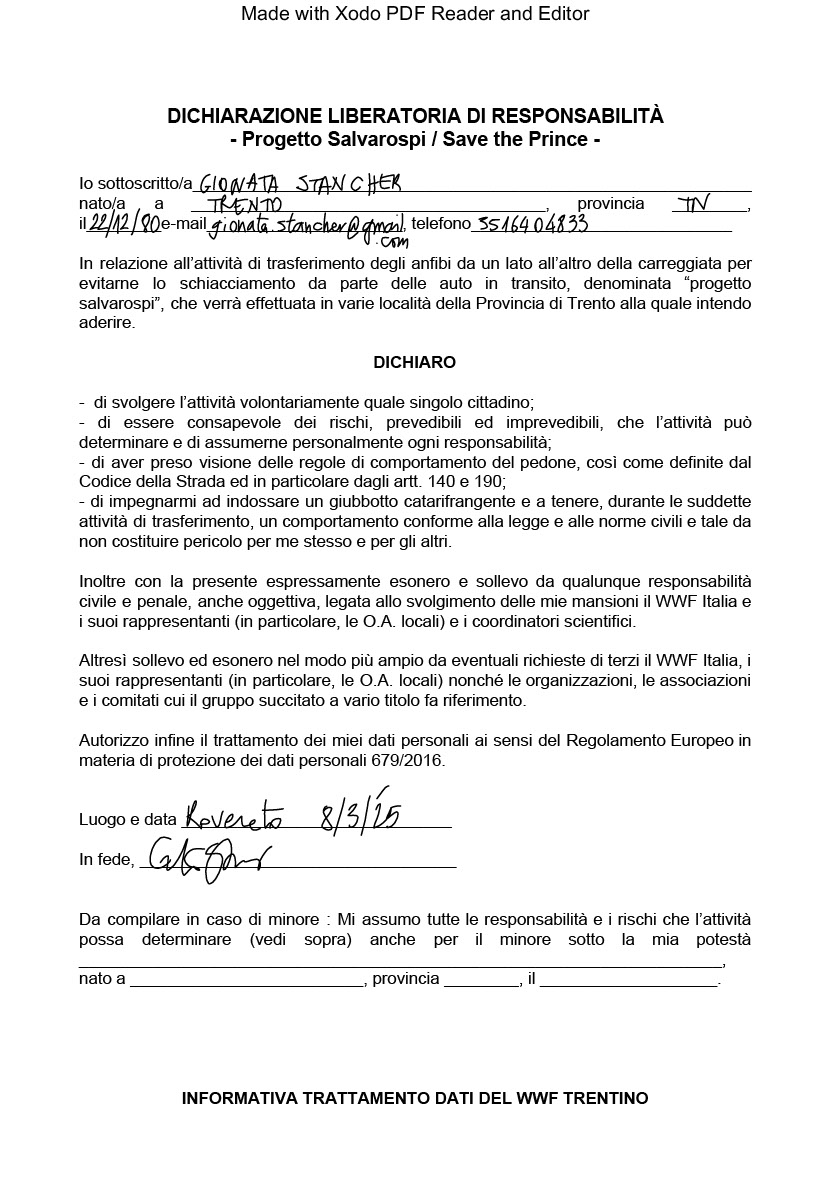 Made with Xodo PDF Reader and Editor
DICHIARAZIONE LIBERATORIA DI RESPONSABILITÀ
- Progetto Salvarospi / Save the Prince -
Io sottoscritto/a GIONATA STANCHER
nato/a a TRENTO, provincia TN,
il 22/12/80 e-mail gionata.stancher@gmail.com, telefono 3516404833
In relazione all’attività di trasferimento degli anfibi da un lato all’altro della carreggiata per
evitarne lo schiacciamento da parte delle auto in transito, denominata “progetto
salvarospi”, che verrà effettuata in varie località della Provincia di Trento alla quale intendo
aderire.
DICHIARO
- di svolgere l’attività volontariamente quale singolo cittadino;
- di essere consapevole dei rischi, prevedibili ed imprevedibili, che l’attività può
determinare e di assumerne personalmente ogni responsabilità;
- di aver preso visione delle regole di comportamento del pedone, così come definite dal
Codice della Strada ed in particolare dagli artt. 140 e 190;
- di impegnarmi ad indossare un giubbotto catarifrangente e a tenere, durante le suddette
attività di trasferimento, un comportamento conforme alla legge e alle norme civili e tale da
non costituire pericolo per me stesso e per gli altri.
Inoltre con la presente espressamente esonero e sollevo da qualunque responsabilità
civile e penale, anche oggettiva, legata allo svolgimento delle mie mansioni il WWF Italia e
i suoi rappresentanti (in particolare, le O.A. locali) e i coordinatori scientifici.
Altresì sollevo ed esonero nel modo più ampio da eventuali richieste di terzi il WWF Italia, i
suoi rappresentanti (in particolare, le O.A. locali) nonché le organizzazioni, le associazioni
e i comitati cui il gruppo succitato a vario titolo fa riferimento.
Autorizzo infine il trattamento dei miei dati personali ai sensi del Regolamento Europeo in
materia di protezione dei dati personali 679/2016.
Luogo e data Rovereto 8/3/25
In fede,
Da compilare in caso di minore : Mi assumo tutte le responsabilità e i rischi che l’attività
possa determinare (vedi sopra) anche per il minore sotto la mia potestà
,
nato a , provincia , il .
INFORMATIVA TRATTAMENTO DATI DEL WWF TRENTINO